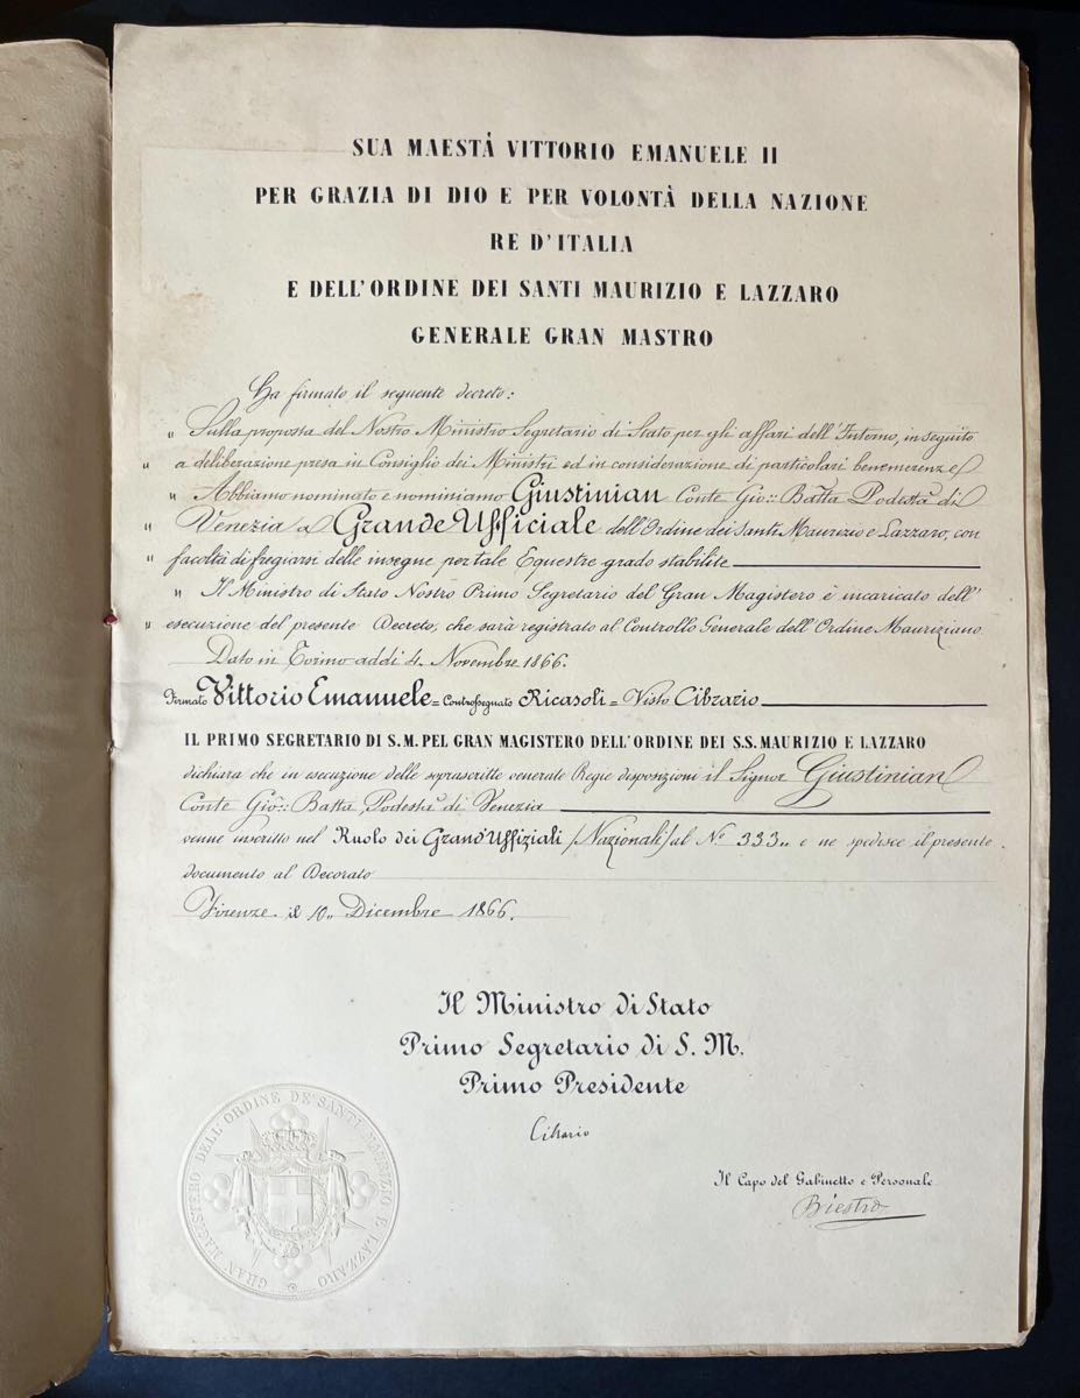 SUA MAESTÁ VITTORIO EMANUELE II
PER GRAZIA DI DIO E PER VOLONTÀ DELLA NAZIONE
RE D'ITALIA
E DELL'ORDINE DEI SANTI MAURIZIO E LAZZARO
GENERALE GRAN MASTRO
Ha firmato il seguente decreto:
„ Sulla proposta del Nostro Ministro Segretario di Stato per gli affari dell'Interno, in seguito
„ a deliberazione presa in Consiglio dei Ministri ed in considerazione di particolari benemerenze
„ Abbiamo nominato e nominiamo Giustinian Conte Gio:: Batta Podestà di
„ Venezia a Grande Ufficiale dell'Ordine dei Santi Maurizio e Lazzaro, con
„ facoltà di fregiarsi delle insegne per tale Equestre grado stabilite
„ Il Ministro di Stato Nostro Primo Segretario del Gran Magistero è incaricato dell'
„ esecuzione del presente Decreto, che sarà registrato al Controllo Generale dell'Ordine Mauriziano
Dato in Torino addì 4. Novembre 1866.
Firmato Vittorio Emanuele = Controssegnato Ricasoli = Visto Cibrario
IL PRIMO SEGRETARIO DI S.M. PEL GRAN MAGISTERO DELL'ORDINE DEI S.S. MAURIZIO E LAZZARO
dichiara che in esecuzione delle soprascritte venerate Regie disposizioni il Signor Giustinian
Conte Gio:: Batta, Podestà di Venezia
venne inscritto nel Ruolo dei Grand'Uffiziali (Nazionali) al N.º 333„ e ne spedisce il presente
documento al Decorato
Firenze, il 10„ Dicembre 1866.
Il Ministro di Stato
Primo Segretario di S. M.
Primo Presidente
Cibrario
Il Capo del Gabinetto e Personale
Biestro
GRAN MAGISTERO DELL'ORDINE DE' SANTI MAURIZIO E LAZZARO